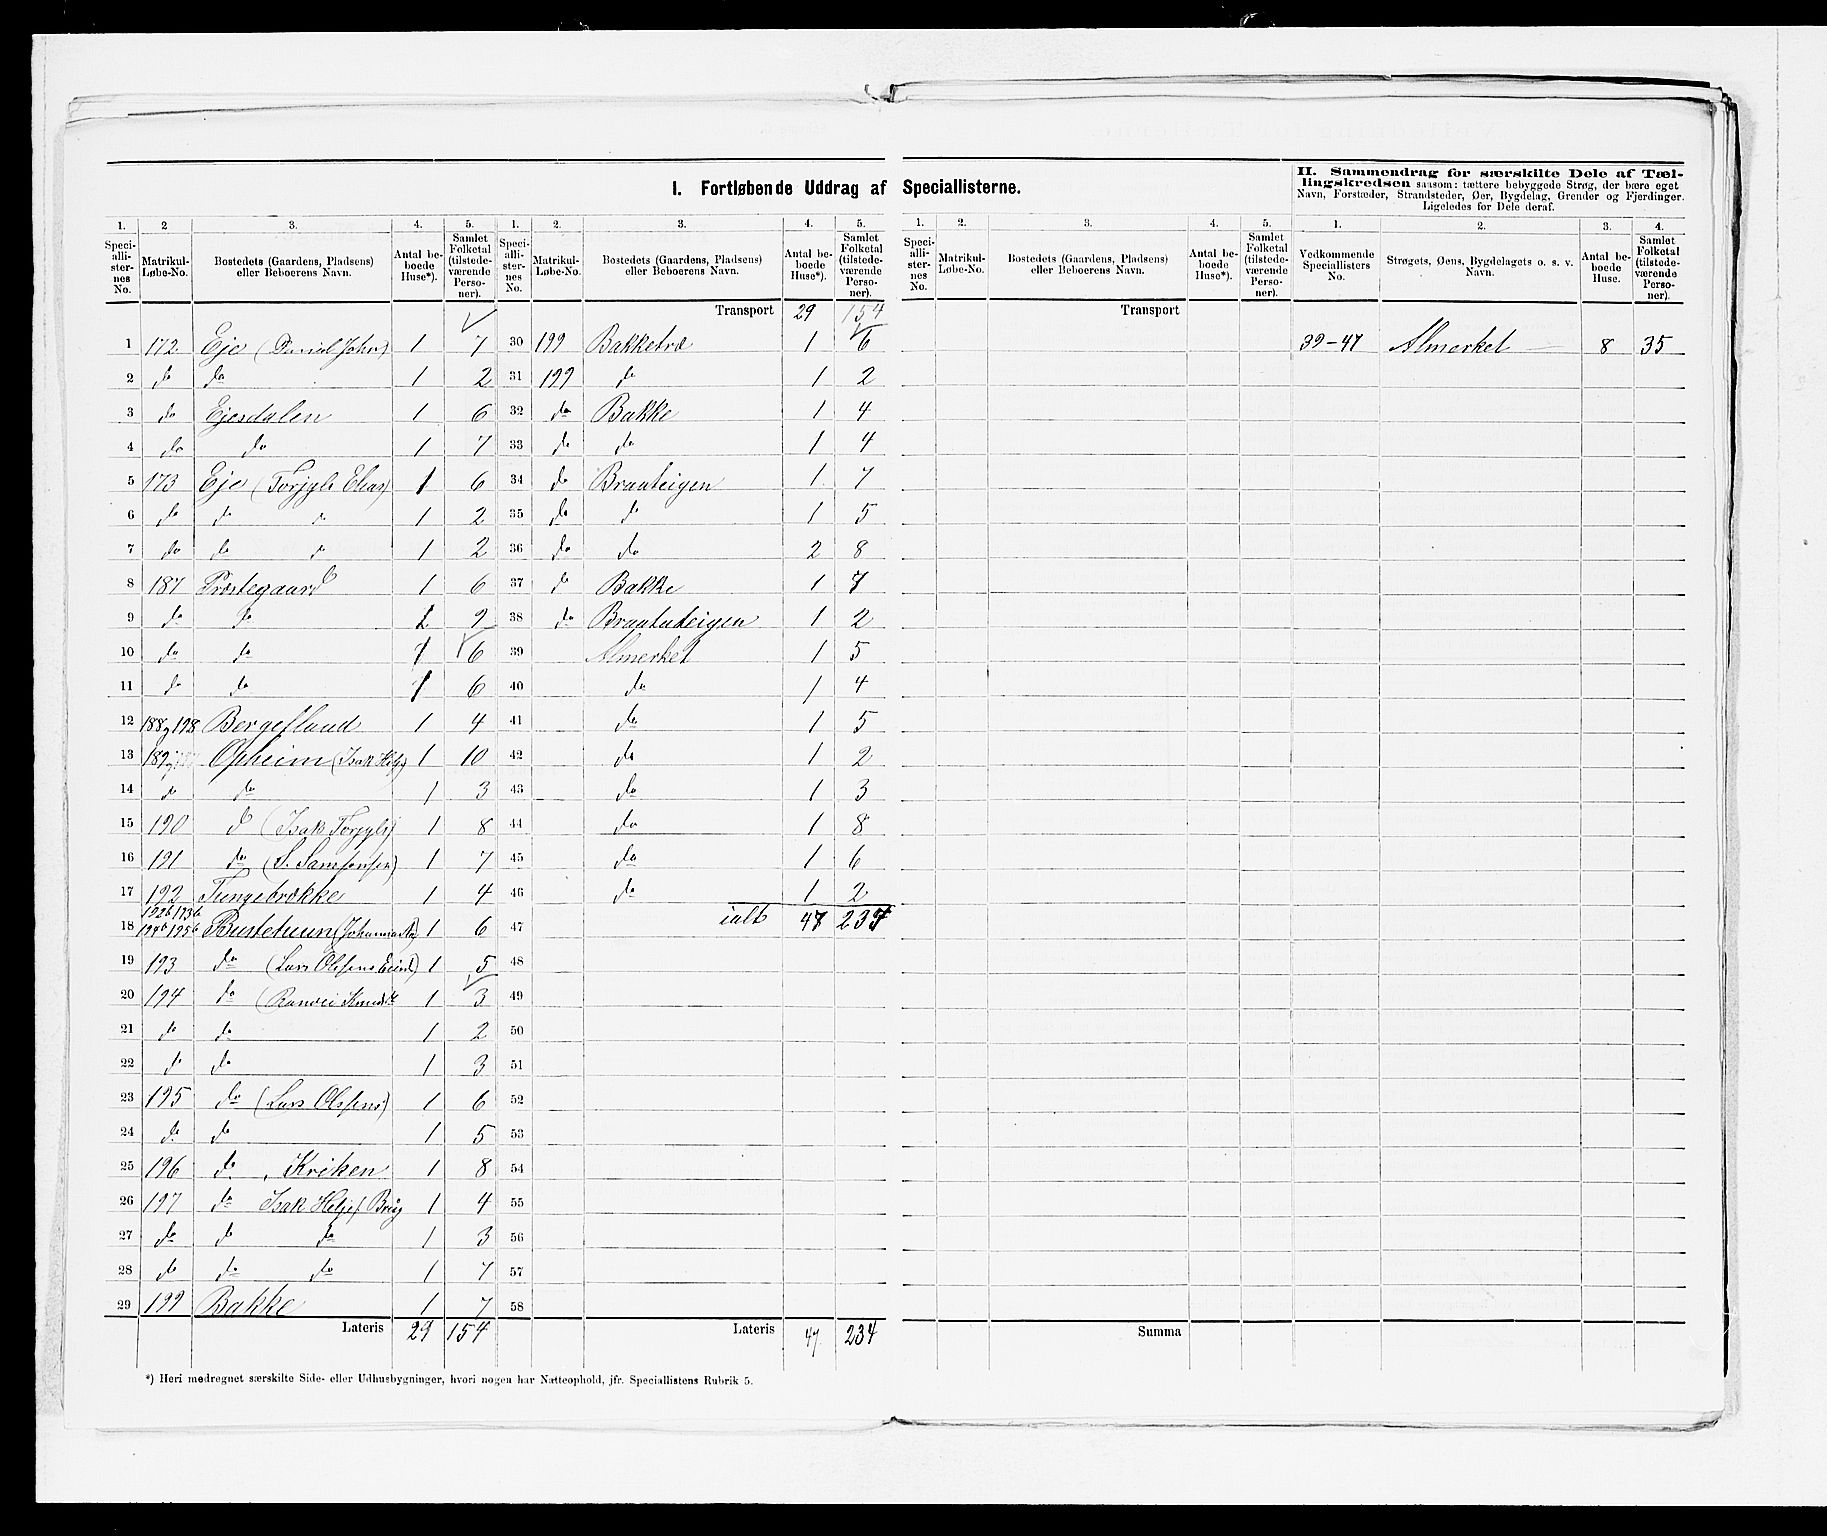 I. Fortløbende Uddrag af Speciallisterne.
II. Sammendrag for særskilte Dele af Tællingskredsen saasom: tættere bebyggede Strøg, der bære eget
Navn, Forstæder, Strandsteder, Øer, Bygdelag, Grender og Fjerdinger.
Ligeledes for Dele deraf.
1. 2 3. 4. 5. 1. 2. 3. 4. 5. 1. 2. 3. 4. 5. 1. 2. 3. 4.
Speciallisternes No. Matrikul-Løbe-No. Bostedets (Gaardens, Pladsens) eller Beboerens Navn. Antal beboede Huse*). Samlet Folketal (tilstedeværende Personer).
Speciallisternes No. Matrikul-Løbe-No. Bostedets (Gaardens, Pladsens) eller Beboerens Navn. Antal beboede Huse*). Samlet Folketal (tilstedeværende Personer).
Speciallisternes No. Matrikul-Løbe-No. Bostedets (Gaardens, Pladsens) eller Beboerens Navn. Antal beboede Huse*). Samlet Folketal (tilstedeværende Personer).
Vedkommende Speciallisters No. Strøgets, Øens, Bygdelagets o. s. v. Navn. Antal beboede Huse. Samlet Folketal (tilstedeværende Personer).
Transport 29 154 Transport
1 172 Eje (Daniel John) 1 7 30 199 Bakketræ 1 6 39-47 Almerket 8 35
2 do do 1 2 31 199 do 1 2
3 do Ejesdalen 1 6 32 do Bakke 1 4
4 do do 1 7 33 do do 1 4
5 173 Eje (Torjyls Elias) 1 6 34 do Brauteigen 1 7
6 do do do 1 2 35 do do 1 5
7 do do do 1 2 36 do do 2 8
8 187 Præstegaard 1 6 37 do Bakke 1 7
9 do do 1 2 38 do Braututeigen 1 2
10 do do 1 6 39 Almerket 1 5
11 do do 1 6 40 do 1 4
12 188 og 198 Bergesland 1 4 41 do 1 5
13 189 og Opheim (Isak Helg) 1 10 42 do 1 2
14 do do 1 3 43 do 1 3
15 190 do (Isak Torjyls) 1 8 44 do 1 8
16 191 do (S. Samsonsen) 1 7 45 do 1 6
17 192 Tungebrække 1 4 46 do 1 2
192b 193b
18 194b 195b Bustetuun (Johannes 1 6 47 ialt 47 234
19 193 do (Lars Olssens 1 5 48
20 194 do (Ranvei Knuds 1 3 49
21 do do 1 2 50
22 do do 1 3 51
23 195 do (Lars Olssens) 1 6 52
24 do do 1 5 53
25 196 do, Kriken 1 8 54
26 197 do Isak Heljes Brug 1 4 55
27 do do do 1 3 56
28 do do do 1 7 57
29 199 Bakke 1 7 58
Lateris 29 154 Lateris 47 234 Summa
*) Heri medregnet særskilte Side- eller Udhusbygninger, hvori nogen har Natteophold, jfr. Speciallistens Rubrik 5.